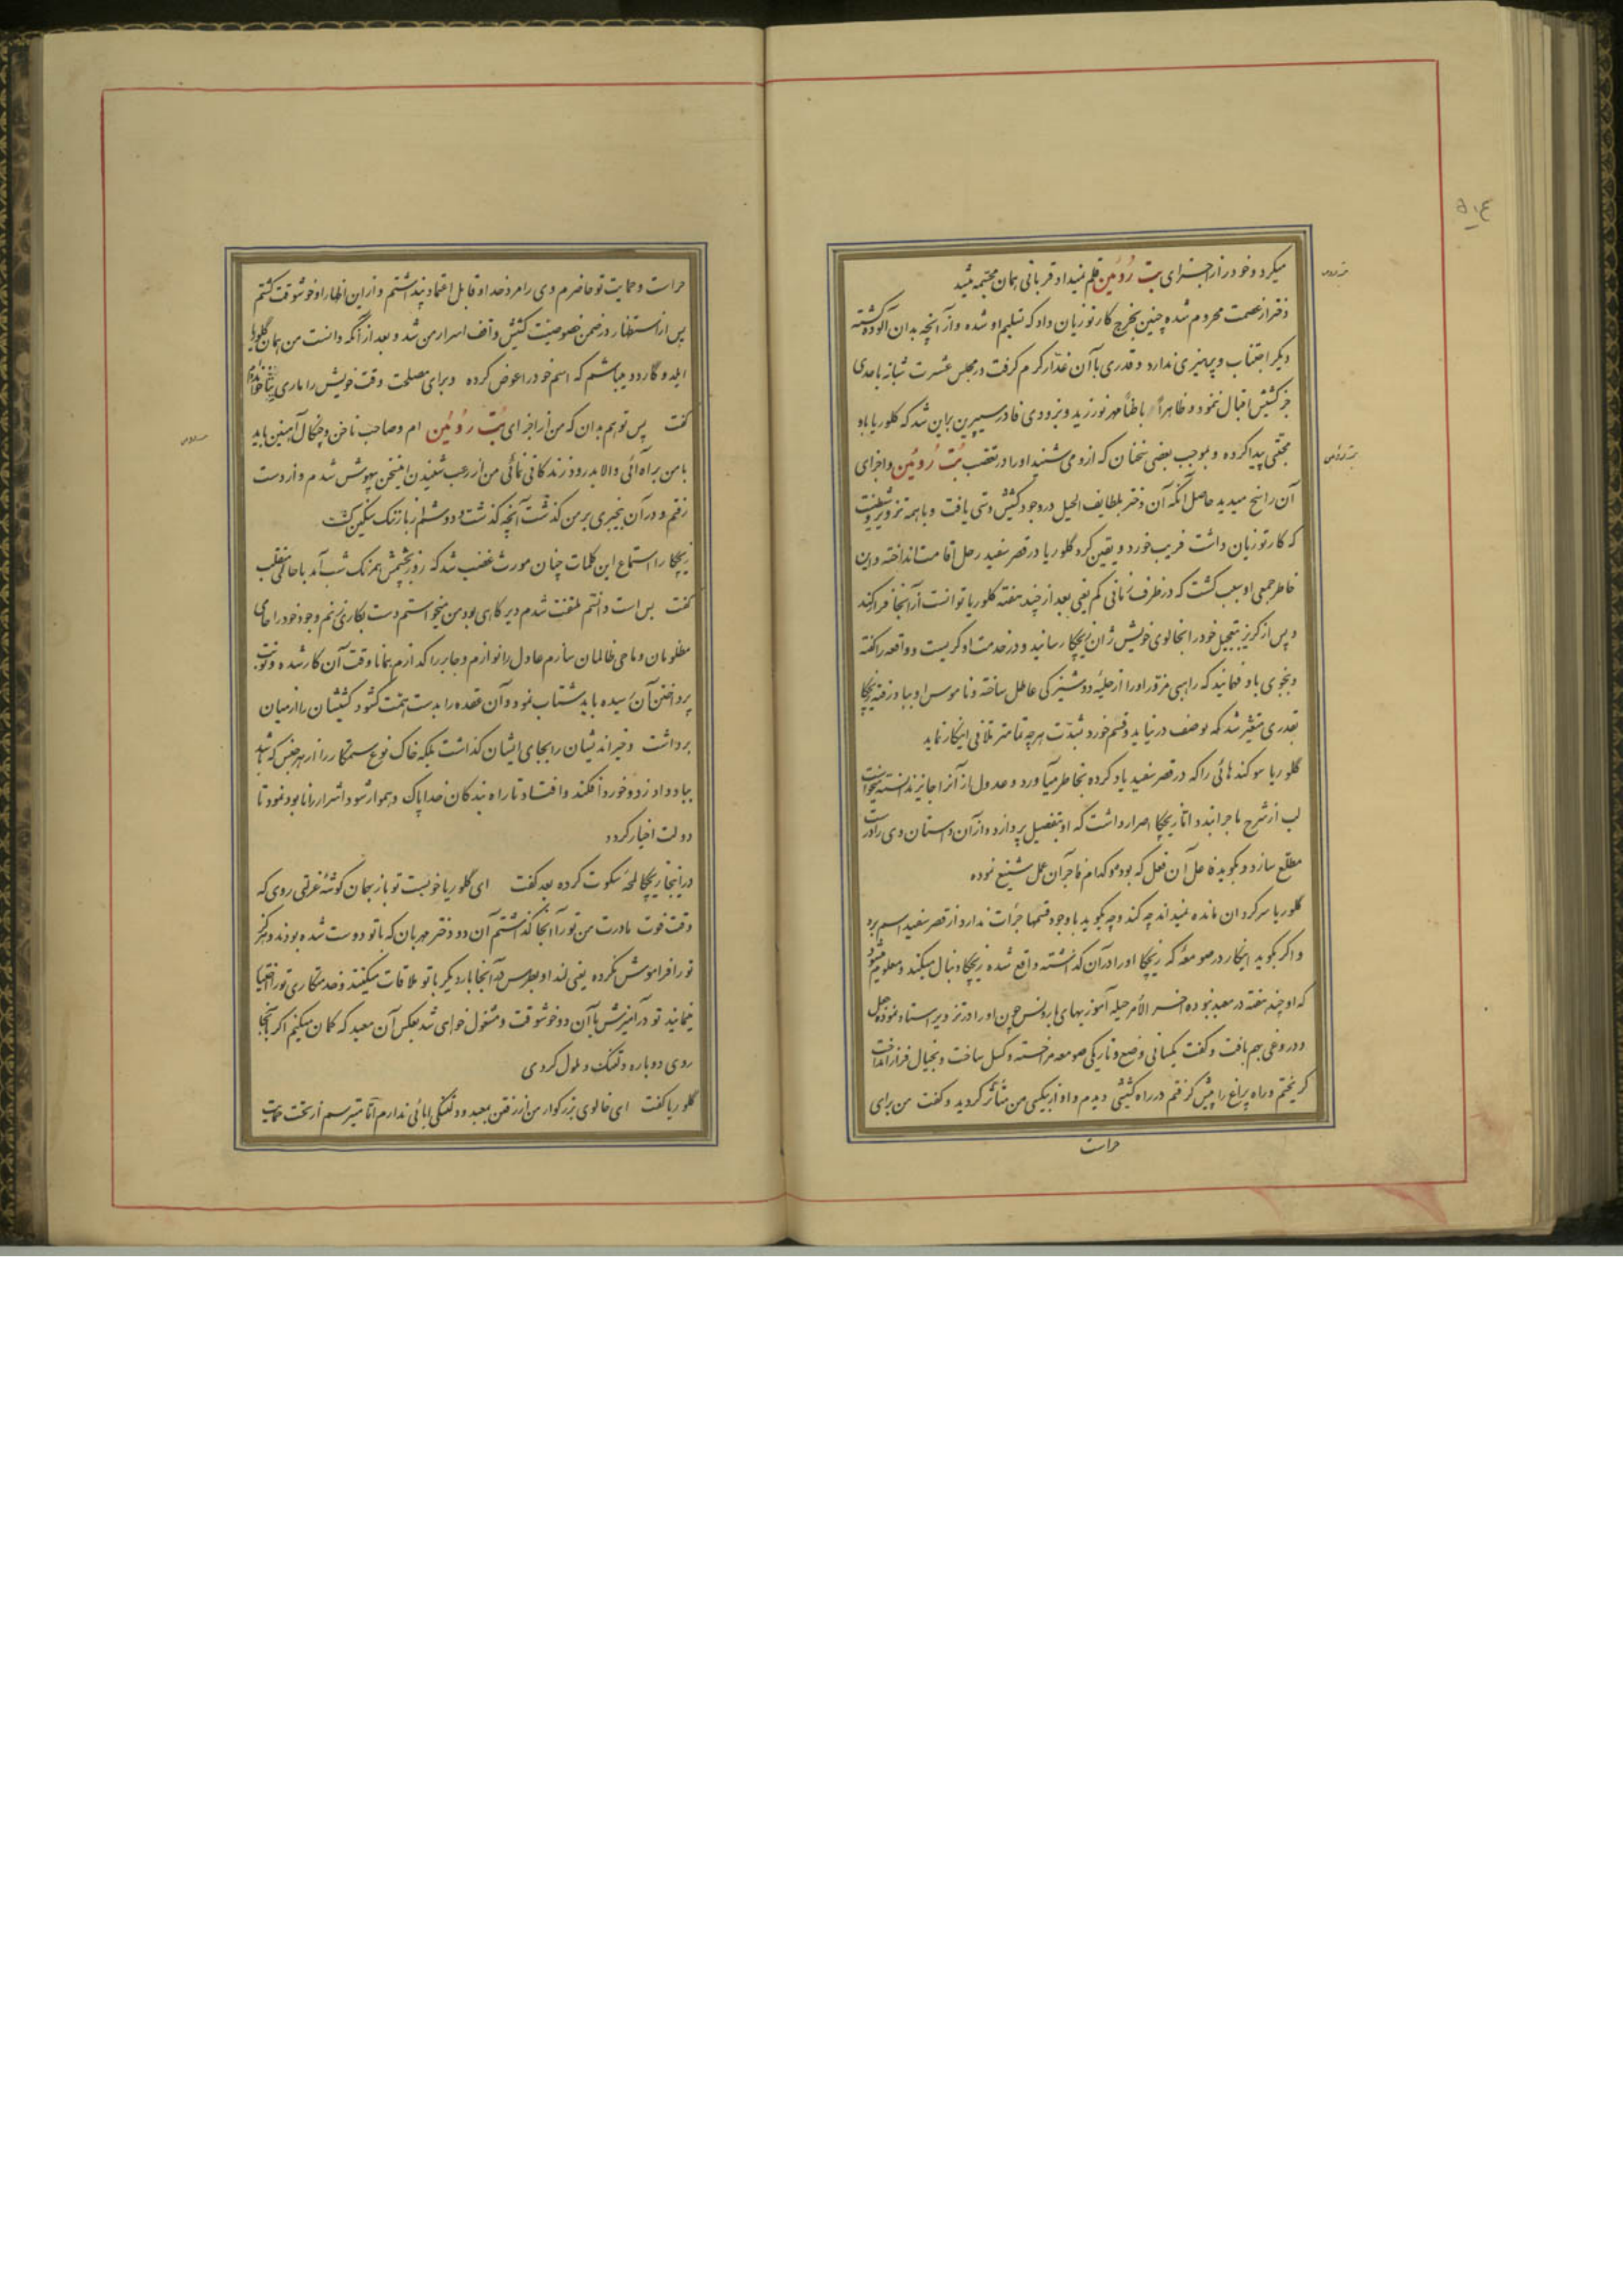 میکرد و خود را از اجزای بت رُوئین قلم نمیداد قربانی همان مجسّمه میشد
دختر از عصمت محروم شده چنین بخرج کارتوزیان داد که تسلیم او شده و از آنچه بدان آلوده گشته
دیگر اجتناب و پرهیزی ندارد و قدری با آن غدّار گرم گرفت در مجلس عشرت شبانه با احدی
جز کشیش اقبال ننمود و ظاهراً باطناً مهر نورزید و بزودی فادر سیپرین براین شد که گلوریا باو
محبّتی پیدا کرده و بموجب بعضی سخنان که ازو می شنید او را در تعصّب بُت رُوئین و اجزای
آن راسخ میدید حاصل آنکه آن دختر بلطایف الحیل در وجود کشیش دستی یافت و با همه تزویر و شیطنت
که کارتوزیان داشت فریب خورد و یقین کرد گلوریا در قصر سفید رحل اقامت انداخته و این
خاطر جمعی او سبب گشت که در ظرف زمانی کم یعنی بعد از چند هفته گلوریا توانست از آنجا فرار کند
و پس از گریز بتعجیل خود را بخالوی خویش ژان زیچکا رسانید و در خدمت او گریست و واقعه را گفته
و بنحوی باو فهمانید که راهبی مزوّر او را از حلیهٔ دوشیزگی عاطل ساخته و ناموس او بباد رفته زیچکا
بقدری متغیّر شد که بوصف در نیاید و قسم خورد بشدّت هر چه تمامتر تلافی اینکار نماید
گلوریا سوگندهائی را که در قصر سفید یاد کرده بخاطر میآورد و عدول از آنرا جایز ندانسته میخواست
لب از شرح ماجرا بندد امّا زیچکا اصرار داشت که او بتفصیل پردازد و از آن داستان وی را درست
مطّلع سازد و بگوید فاعل آن فعل که بود و کدام فاجر آن عمل شنیع نموده
گلوریا سرگردان مانده نمیداند چه کند و چه بگوید با وجود قسمها جرأت ندارد از قصر سفید اسم برد
و اگر بگوید اینکار در صومعهٔ که زیچکا او را در آن گذاشته واقع شده زیچکا دنبال میکند و معلوم میشود
که او چند هفته در معبد نبوده آخر الأمر حیله آموزیهای بارونس هم چون او را در تزویر استاد نموده جعل
و دروغی بهم بافت و گفت یکسانی وضع و تاریکی صومعه مرا خسته و کسل ساخت و بخیال فرار انداخت
گریختم و راه پراغ را پیش گرفتم در راه کشیشی دیدم و او از بیکسی من متأثّر گردید و گفت من برای
حراست
حراست و حمایت تو حاضرم وی را مرد خدا و قابل اعتماد پنداشتم و از این اظهار او خوشوقت گشتم
پس از استنطاق در ضمن خصوصیّت کشیش واقف اسرار من شد و بعد از آنکه دانست من همان گلوریا
ایلدوگاردو میباشم که اسم خود را عوض کرده و برای مصلحت وقت خویش را ماری خوانده‌ام
گفت پس تو هم بدان که من از اجزای بُت رُوئین ام و صاحب ناخن و چنگال آهنین باید
با من براه آئی والا بدرود زندگانی نمائی من از رعب شنیدن این سخن بیهوش شدم و از دست
رفتم و در آن بیخبری بر من گذشت آنچه گذشت و دوشم از بار ننگ سنگین گشت
زیچکا را استماع این کلمات چنان مورث غضب شد که روز بچشمش همرنگ شب آمد با حالتی منقلب
گفت بس است دانستم ملتفت شدم دیر گاهی بود من میخواستم دست بکاری زنم و وجود خود را حامی
مظلومان و ماحی ظالمان سازم عادل را نوازم و جابر را گدازم همانا وقت آن کار شده و نوبت
پرداختن آن رسیده باید شتاب نمود و آن عقده را بدست همّت گشود کشیشان را از میان
برداشت و خیراندیشان را بجای ایشان گذاشت بلکه خاک نوع ستمکار را از هر جنس که باشد
بباد داد زد و خورد افکند و افتاد تا راه بندگان خدا پاک و هموار شود و اشرار را نابود نمود تا
دولت اخیار گردد
در اینجا زیچکا لمحهٔ سکوت کرده بعد گفت ای گلوریا خوبست تو باز بهمان گوشهٔ عزلتی روی که
وقت فوت مادرت من تو را آنجا گذاشتم آن دو دختر مهربان که با تو دوست شده بودند و هرگز
تو را فراموش نکرده یعنی لندا و بطرس در آنجا بار دیگر با تو ملاقات میکنند و خدمتکاری تو را
مینمایند تو در آمیزش با آن دو خوشوقت و مشغول خواهی شد بعکس آن معبد که گمان میکنم اگر بآنجا
روی دوباره دلتنگ و ملول گردی
گلوریا گفت ای خالوی بزرگوار من از رفتن بمعبد و دلتنگی ابائی ندارم امّا میترسم از تحت حمایت